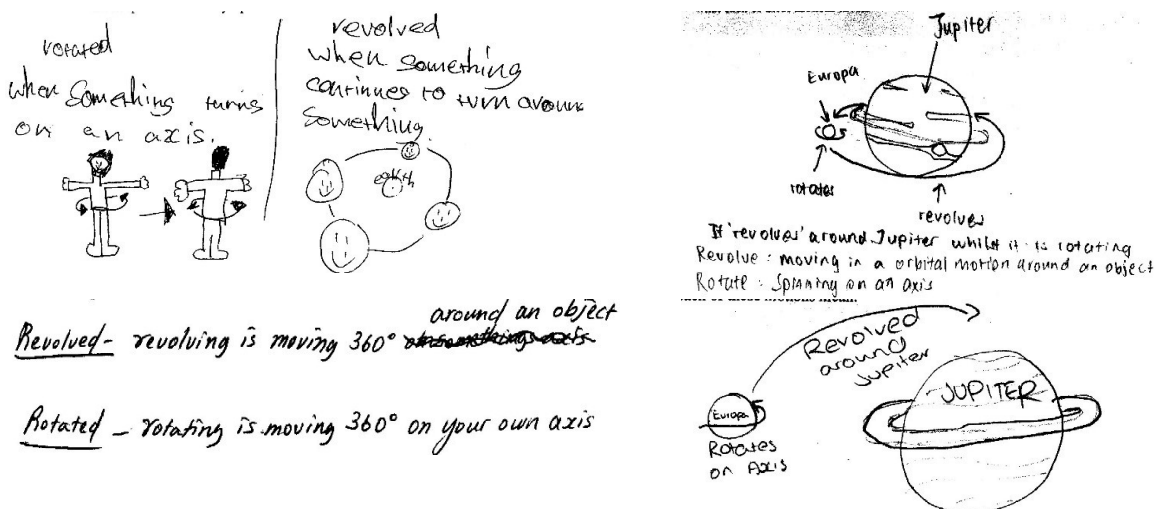 rotated
when something turns
on an axis.
revolved
when something
continues to turn around
something.
earth
Revolved - revolving is moving 360° around an object
Rotated - rotating is moving 360° on your own axis
Jupiter
Europa
rotates
revolves
It 'revolves' around Jupiter whilst it is rotating
Revolve : moving in a orbital motion around an object
Rotate : Spinning on an axis
Revolved
around
Jupiter
JUPITER
Europa
Rotates
on Axis